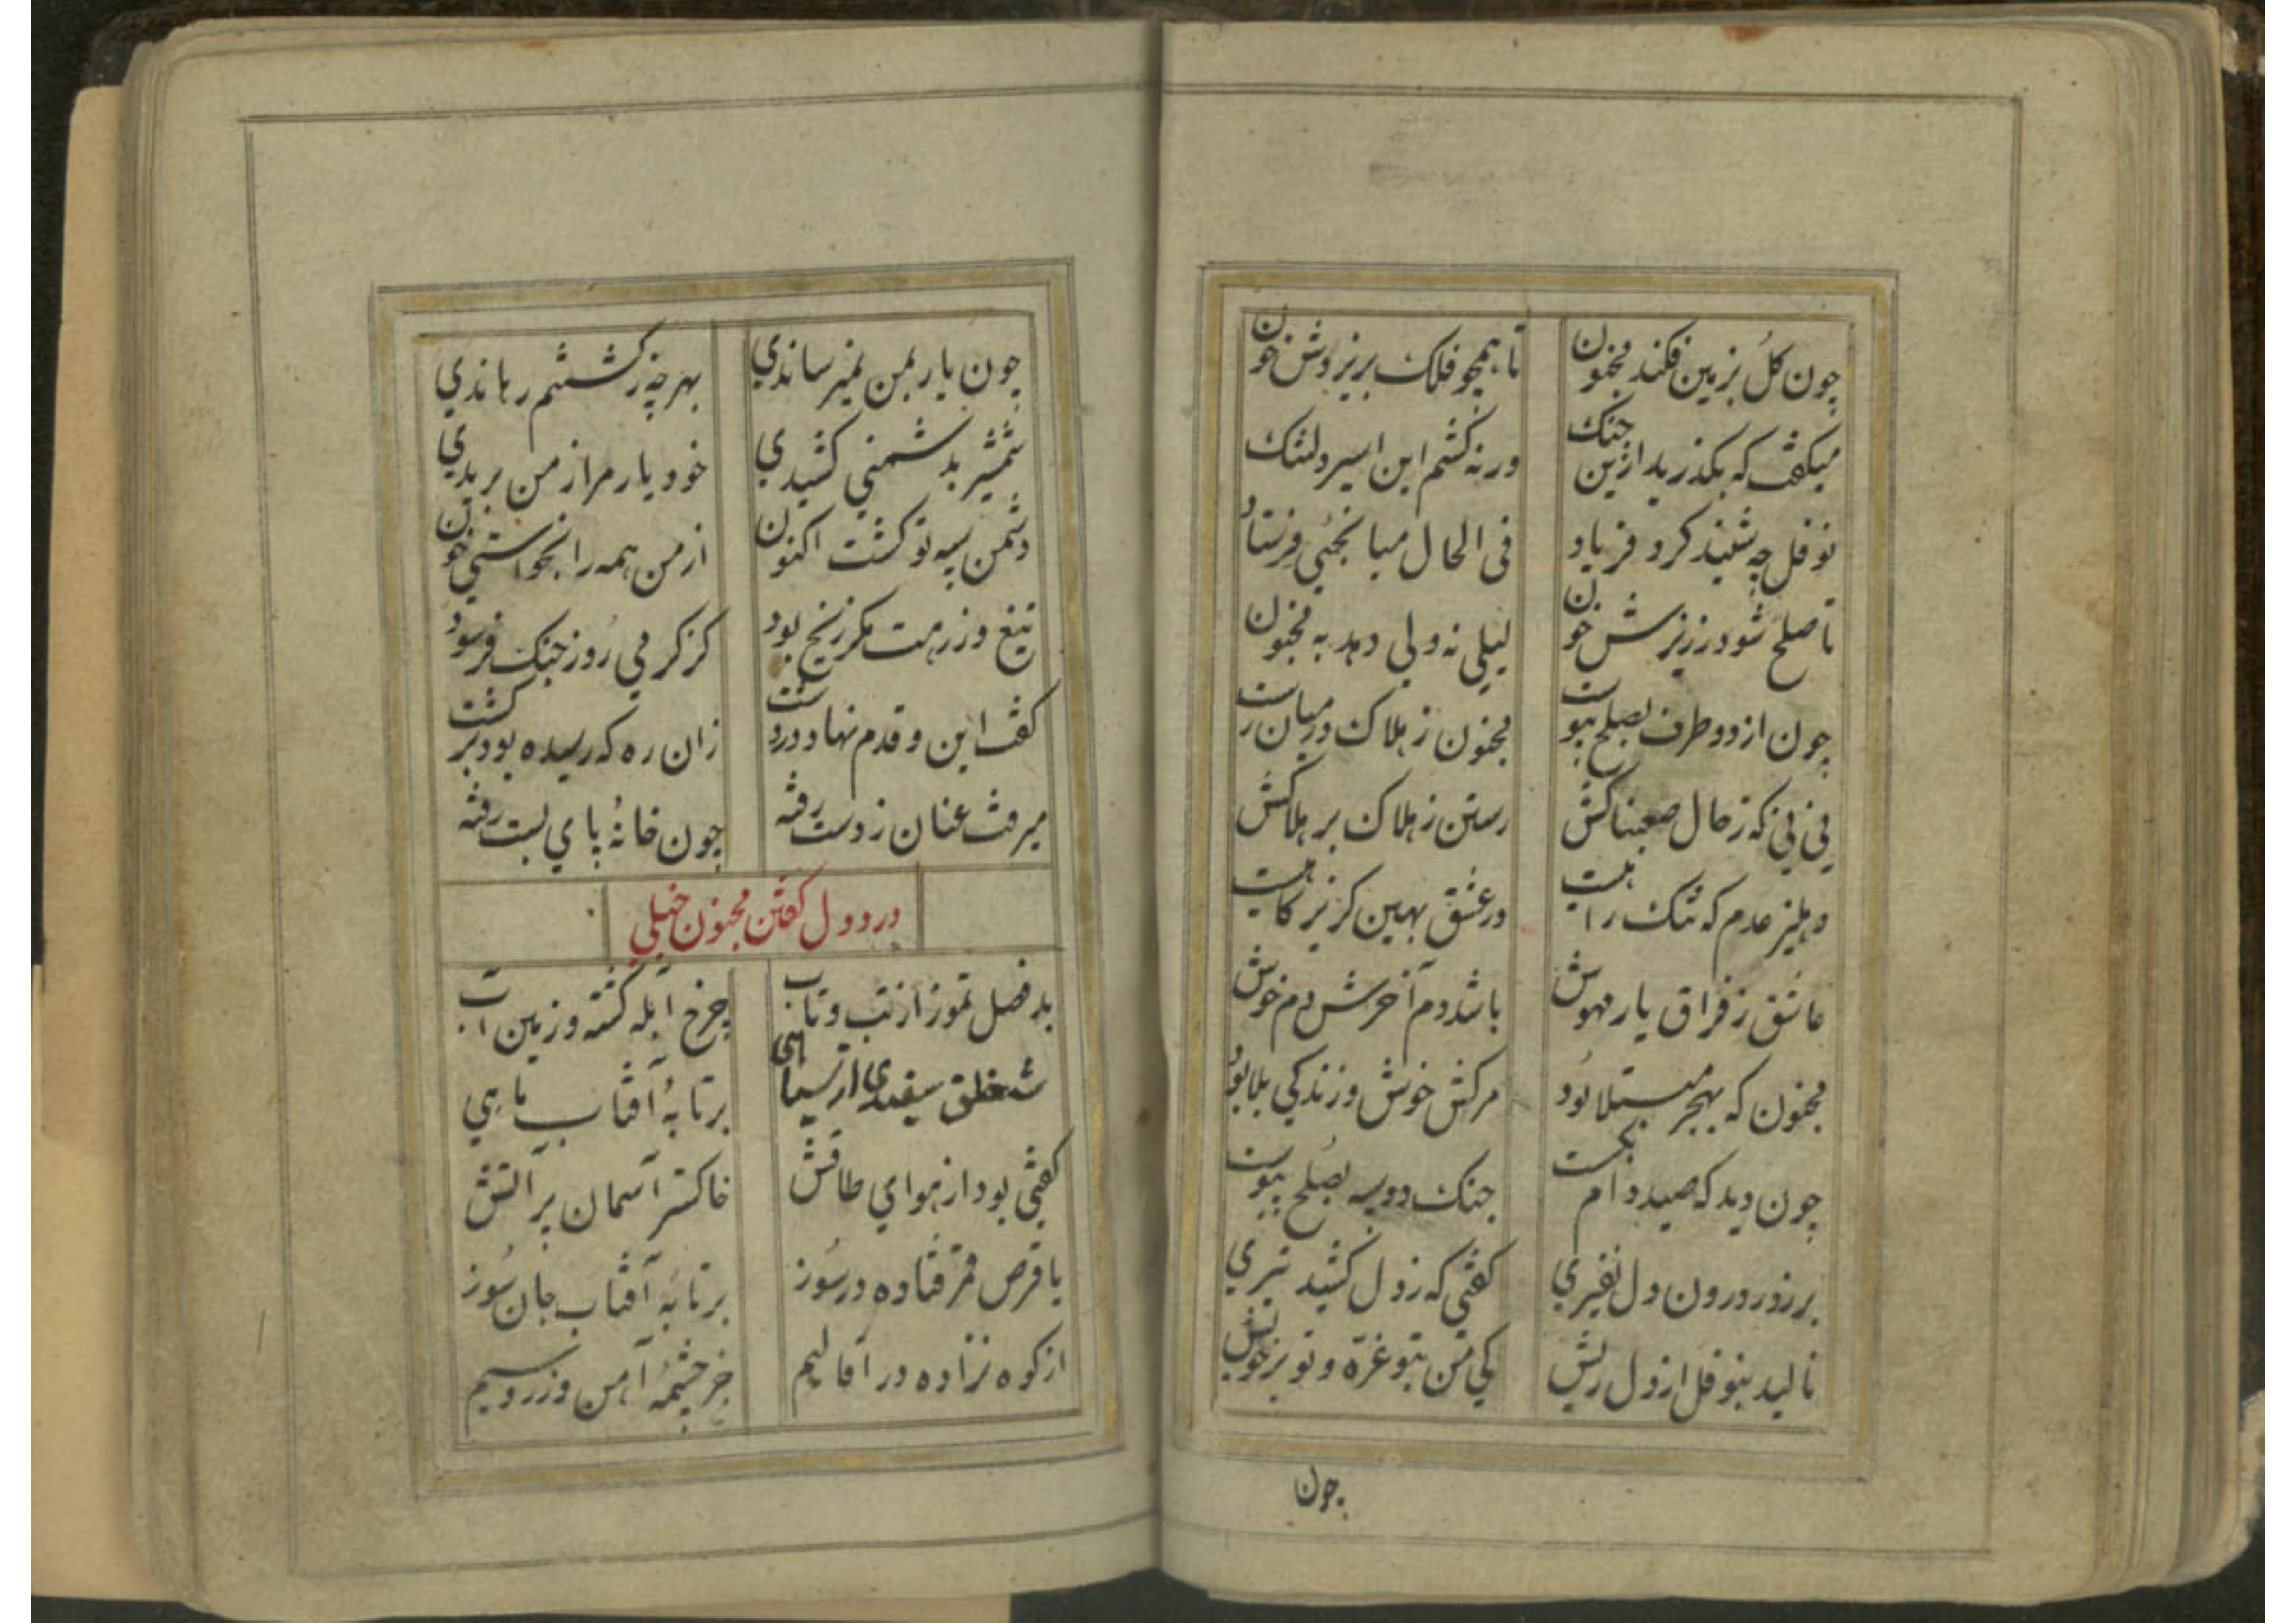 چون گل بزمین فکند مجنون تا همچو فلک بریزدش خون
میگفت که بگذرید ازین جنک ورنه کشم این اسیر دلتنک
نوفل چه شنید کرد فریاد فی الحال میانجیی فرستاد
تا صلح شود زریزش خون لیلی نه ولی دهد به مجنون
چون از دو طرف بصلح پیوست مجنون ز هلاک در میان رست
نی نی که ز حال صعبناکش رستن ز هلاک بر هلاکش
دهلیز عدم که تنک راهیست در عشق بهین کریزکاهیست
عاشق ز فراق یار مهوش باشد دم آخرش دم خوش
مجنون که بهجر مبتلا بود مرکش خوش و زندکی بلا بود
چون دید که صید دام بکسست جنک دو سپه بصلح پیوست
برزد ز درون دل نفیری کفتی که ز دل کشید تیری
نالید بنوفل از دل ریش کی من بتو غره و تو بر خویش
چون
چون یار بمن نمیرساندی بهر چه ز کشتنم رهاندی
شمشیر بدشمنی کشیدی خود یار مرا ز من بریدی
دشمن سپه تو کشت اکنون از من همه را بخواستی خون
تیغ وزرهت مکر زنخ بود کز کرمی روز جنک فرسود
کفت این و قدم نهاد در دشت زان ره که رسیده بود برکشت
میرفت عنان ز دست رفته چون خانهٔ پای بست رفته
درد دل کفتن مجنون خیلی
بد فصل تموز از تب و تاب چرخ آبله کشته و زمین آب
شد خلق سیفدی از سیاهی بر تابهٔ آفتاب ماهی
کفتی بود از هوای طاقش خاکستر آسمان پر آتش
یا قرص قمر فتاده در سوز بر تابهٔ آفتاب جان سوز
از کوه نزاده در آقالیم جز چشمهٔ آهن و زر و سیم